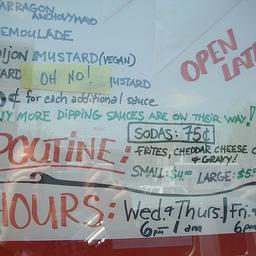 ARRAGON
ANCHOVY MAYO
EMOULADE
DIJON MUSTARD (VEGAN)
OH NO! MUSTARD
¢ for each additional sauce
MORE DIPPING SAUCES ARE ON THEIR WAY!
OPEN
LATE
SODAS: 75¢
POUTINE:
FRITES, CHEDDAR CHEESE C
& GRAVY!
SMALL: $4.00 LARGE: $5.
HOURS: Wed. & Thurs. / Fri. &
6pm / 1am 6pm